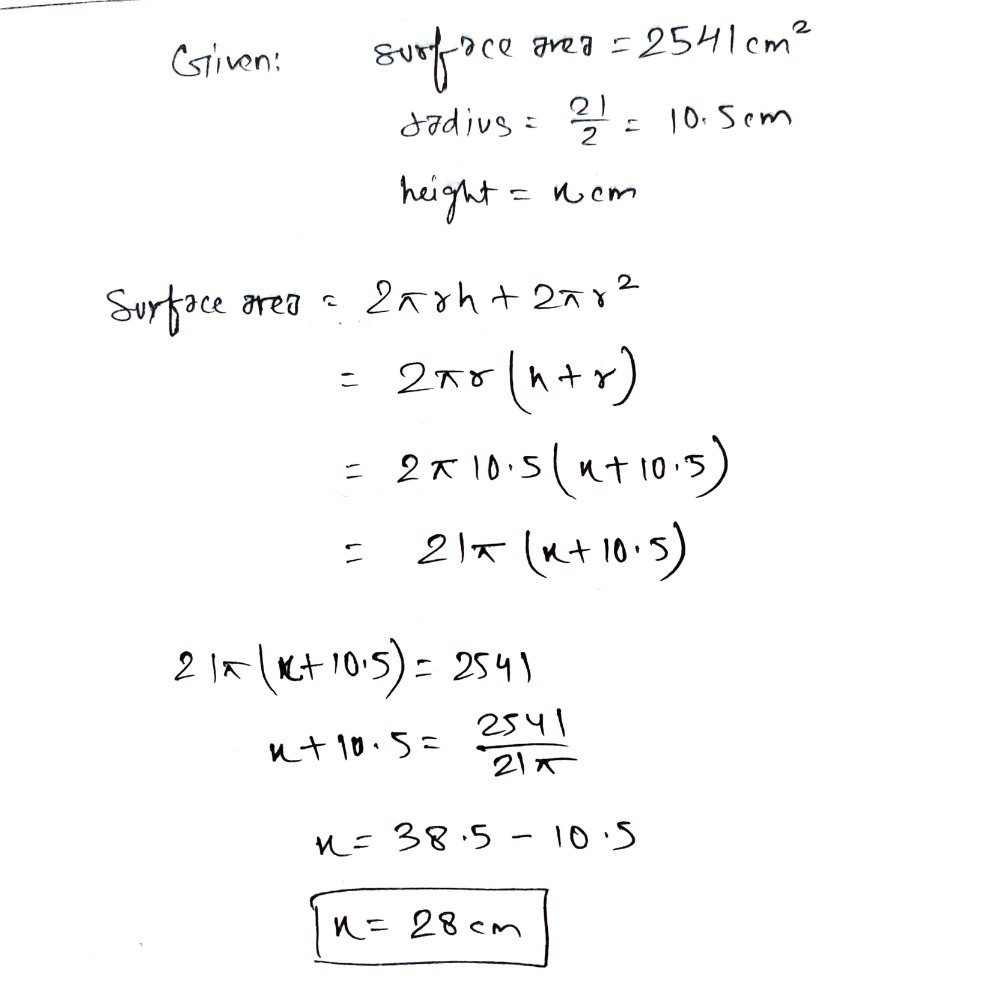 Given: surface area = 2541 cm²
radius = 21/2 = 10.5 cm
height = x cm
Surface area = 2πrh + 2πr²
= 2πr (h + r)
= 2π 10.5 (x + 10.5)
= 21π (x + 10.5)
21π (x + 10.5) = 2541
x + 10.5 = 2541/21π
x = 38.5 − 10.5
x = 28 cm